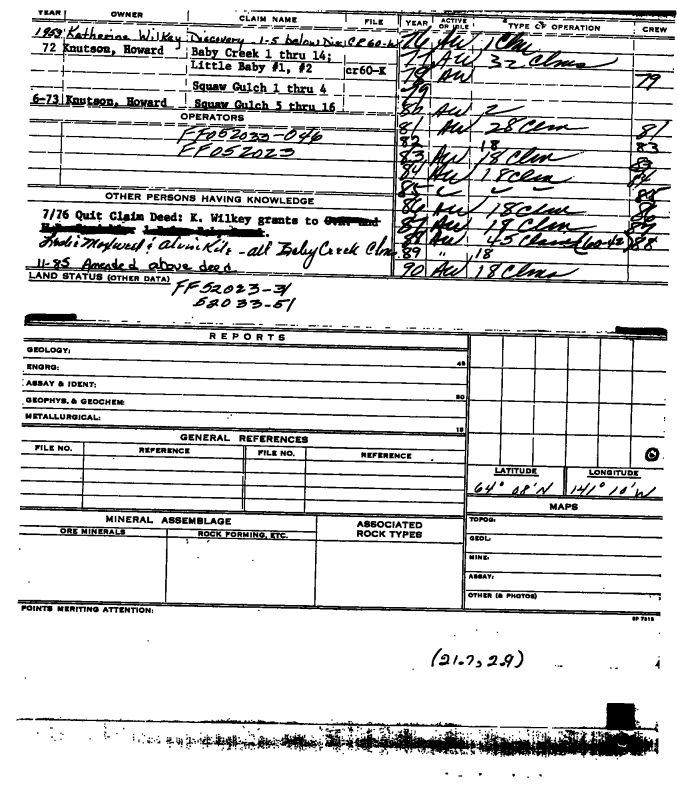 YEAR OWNER CLAIM NAME FILE YEAR ACTIVE OR IDLE TYPE OF OPERATION CREW
1953 Katherine Wilkey Discovery 1-5 below Disc CR60-W 76 AW 1 Clm
72 Knutson, Howard Baby Creek 1 thru 14; 77 AW 32 Clms
Little Baby #1, #2 cr60-K 78 AW 79
Squaw Gulch 1 thru 4 79
6-73 Knutson, Howard Squaw Gulch 5 thru 16 80 AW 2
OPERATORS 81 AW 28 Clm 81
FF052033-046 82 18 83
FF052023 83 AW 18 Clm 83
84 AW 18 Clm 84
85 85
OTHER PERSONS HAVING KNOWLEDGE 86 AW 18 Clm 86
7/76 Quit Claim Deed: K. Wilkey grants to 87 AW 19 Clm 87
88 AW 45 Clms (60-42) 88
- all Baby Creek Clms 89 " 18
11-85 Amended above deed 90 AW 18 Clms
LAND STATUS (OTHER DATA) FF52023-31
52033-51
REPORTS
GEOLOGY: 45
ENGRG:
ASSAY & IDENT:
GEOPHYS. & GEOCHEM: 30
METALLURGICAL: 15
GENERAL REFERENCES
FILE NO. REFERENCE FILE NO. REFERENCE
LATITUDE LONGITUDE
64° 08'N 141° 10'W
MAPS
MINERAL ASSEMBLAGE ASSOCIATED ROCK TYPES TOPOG:
ORE MINERALS ROCK FORMING, ETC.
GEOL:
MINE:
ASSAY:
OTHER (& PHOTOS)
POINTS MERITING ATTENTION:
(21.7, 2.9)